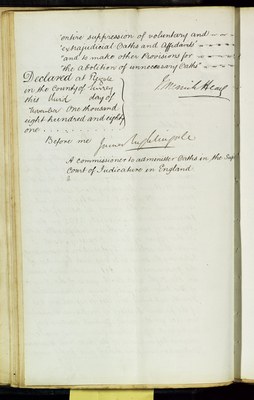 "entire suppression of voluntary and
"extrajudicial Oaths and Affidavits"
"and to make other Provisions for
"the abolition of unnecessary Oaths"
Declared at
in the County of Surrey
this third day of
One thousand
eight hundred and eighty
one
Before me James Nightingale
A Commissioner to administer Oaths in the Sup
Court of Judicature in England